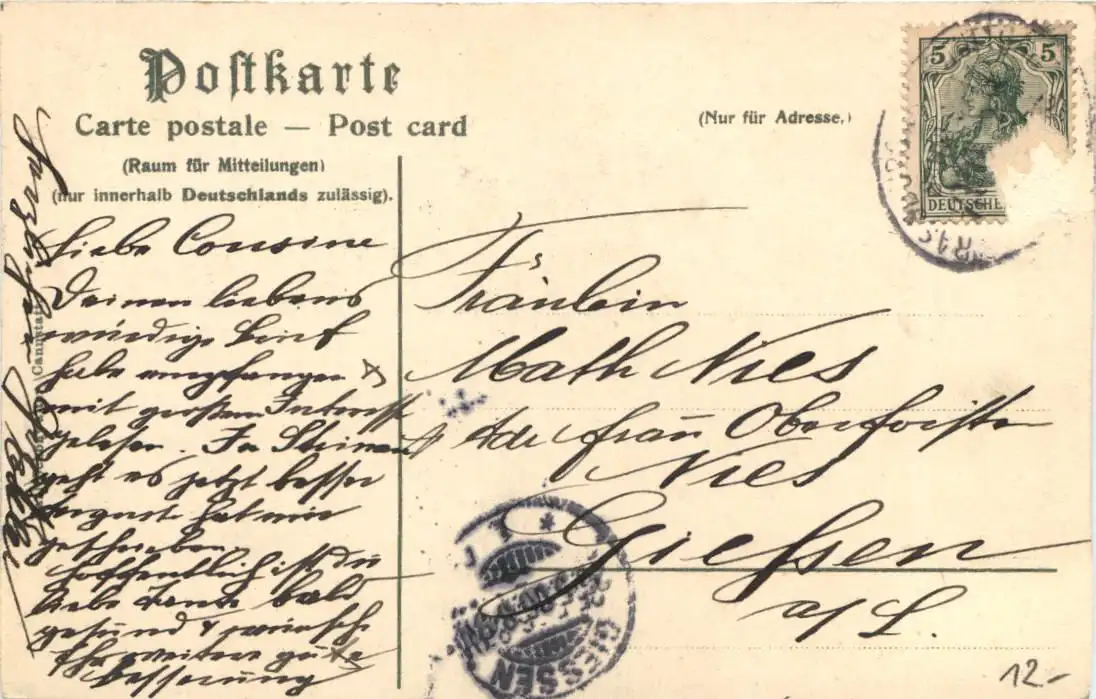 Postkarte
Carte postale — Post card
(Raum für Mitteilungen)
(nur innerhalb Deutschlands zulässig).
(Nur für Adresse.)
5 5
DEUTSCHE
Liebe Cousine
Deinen liebens
würdige Brief
habe empfangen &
mit großem Interesse
gelesen. In Steinau
geht es jetzt besser
Auguste hat mir
geschrieben
Hoffentlich ist Du
liebe Tante bald
gesund & wünsche
Ihr weitere gute
Besserung
Herzl.
Fräulein
Math Nies
Adr Frau Oberförster
Nies
Giessen
a/ L.
GIESSEN
Cannstatt
12.-